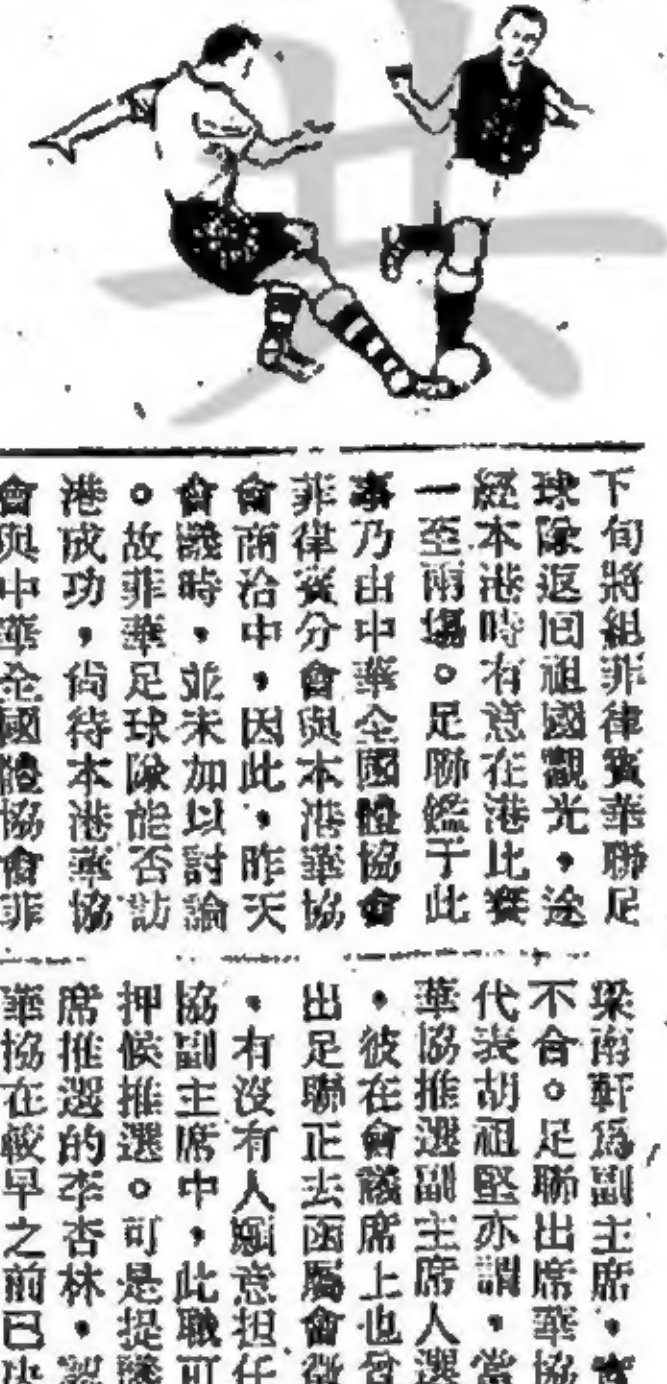 下旬將組菲律賓華聯足
球隊返回祖國觀光，途
經本港時有意在港比賽
一至兩場。足聯鑑于此
事乃由中華全國體協會
菲律賓分會與本港華協
會商洽中，因此，昨天
會議時，並未加以討論
。故菲華足球隊能否訪
港成功，尚待本港華協
會與中華全國體協會菲
梁南軒為副主席，實
不合。足聯出席華協
代表胡祖堅亦謂，當
華協推選副主席人選
，彼在會議席上也曾
出足聯正去函屬會徵
，有沒有人願意担任
協副主席中，此職可
押候推選。可是提議
席推選的李杏林，認
華協在較早之前已